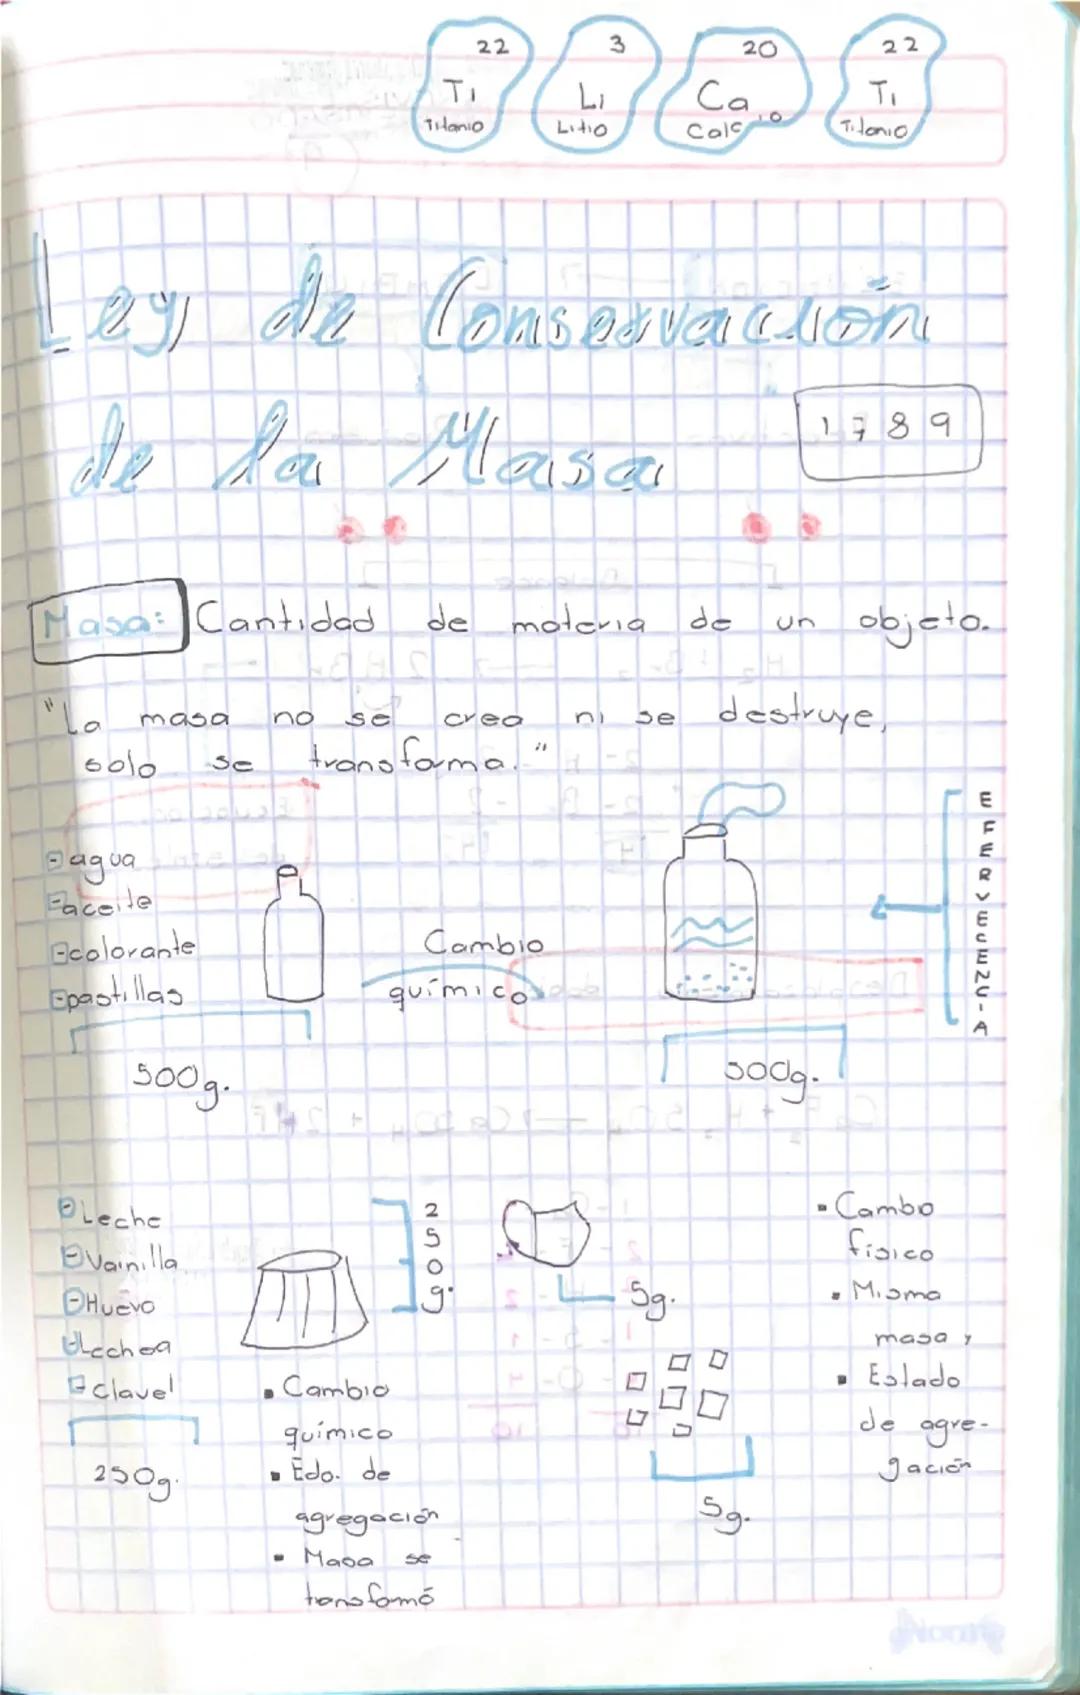 22
Ti
Titanio
3
Li
Litio
20
Ca
Calcio
22
Ti
Titanio
Ley de Conservación
de la Masa
1789
Masa: Cantidad de materia de un objeto.
"La masa no se crea ni se destruye,
solo se transforma."
agua
aceite
colorante
pastillas
500g.
Cambio
químico
500g.
EFERVECENCIA
Leche
Vainilla
Huevo
Lechea
Clavel
250g.
250g.
• Cambio
químico
• Edo. de
agregación
• Masa se
transformó
5g.
5g.
• Cambio
físico
• Misma
masa y
• Estado
de agre-
gación